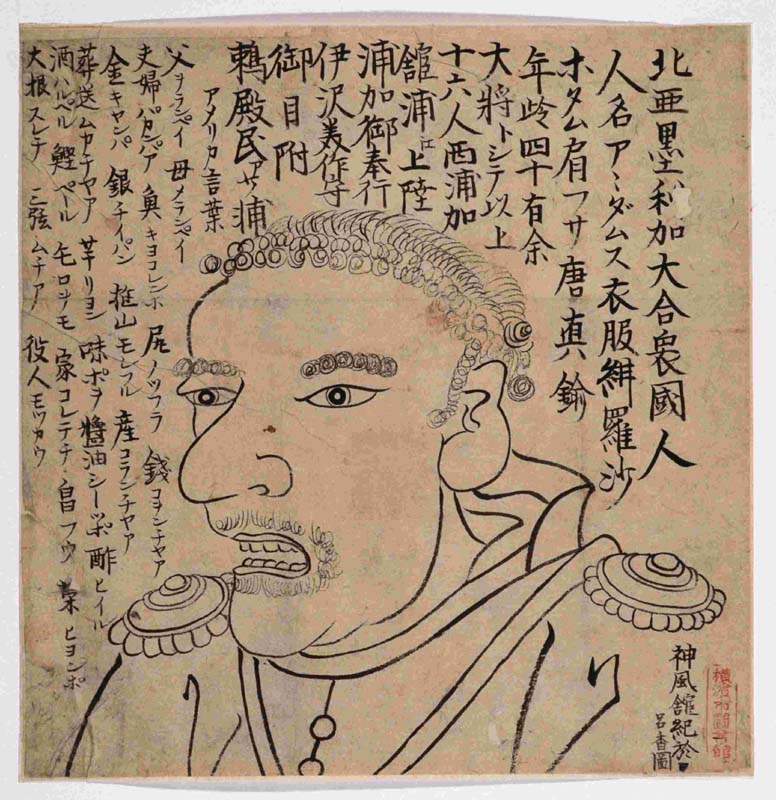 北亜墨利加大合衆國人
人名アミダムス衣服緋羅沙
ホタム肩フサ唐真鍮
年齢四十有余
大將トシテ以上
十六人西浦加
舘浦江上陸
浦加御奉行
伊沢美作守
御目附
鵜殿民ア少捕
アメリカ言葉
父ヲランペイ 母メランペイ
夫婦 魚キヨコレンホ 尻ノツフラ 錢
金キヤンパ 銀チイパン 推山モレフル 産コランチヤア
葬送ムカチヤア 芋リヨン 味ポラ 醬油シーポ 酢ヒイル
酒ハルペル 鰹ペール モロサモ 家コレテチ 昌フウ 栗ヒヨンポ
大根スレテ 三弦ムチア 役人モツカウ
神風舘紀於
呂香圖